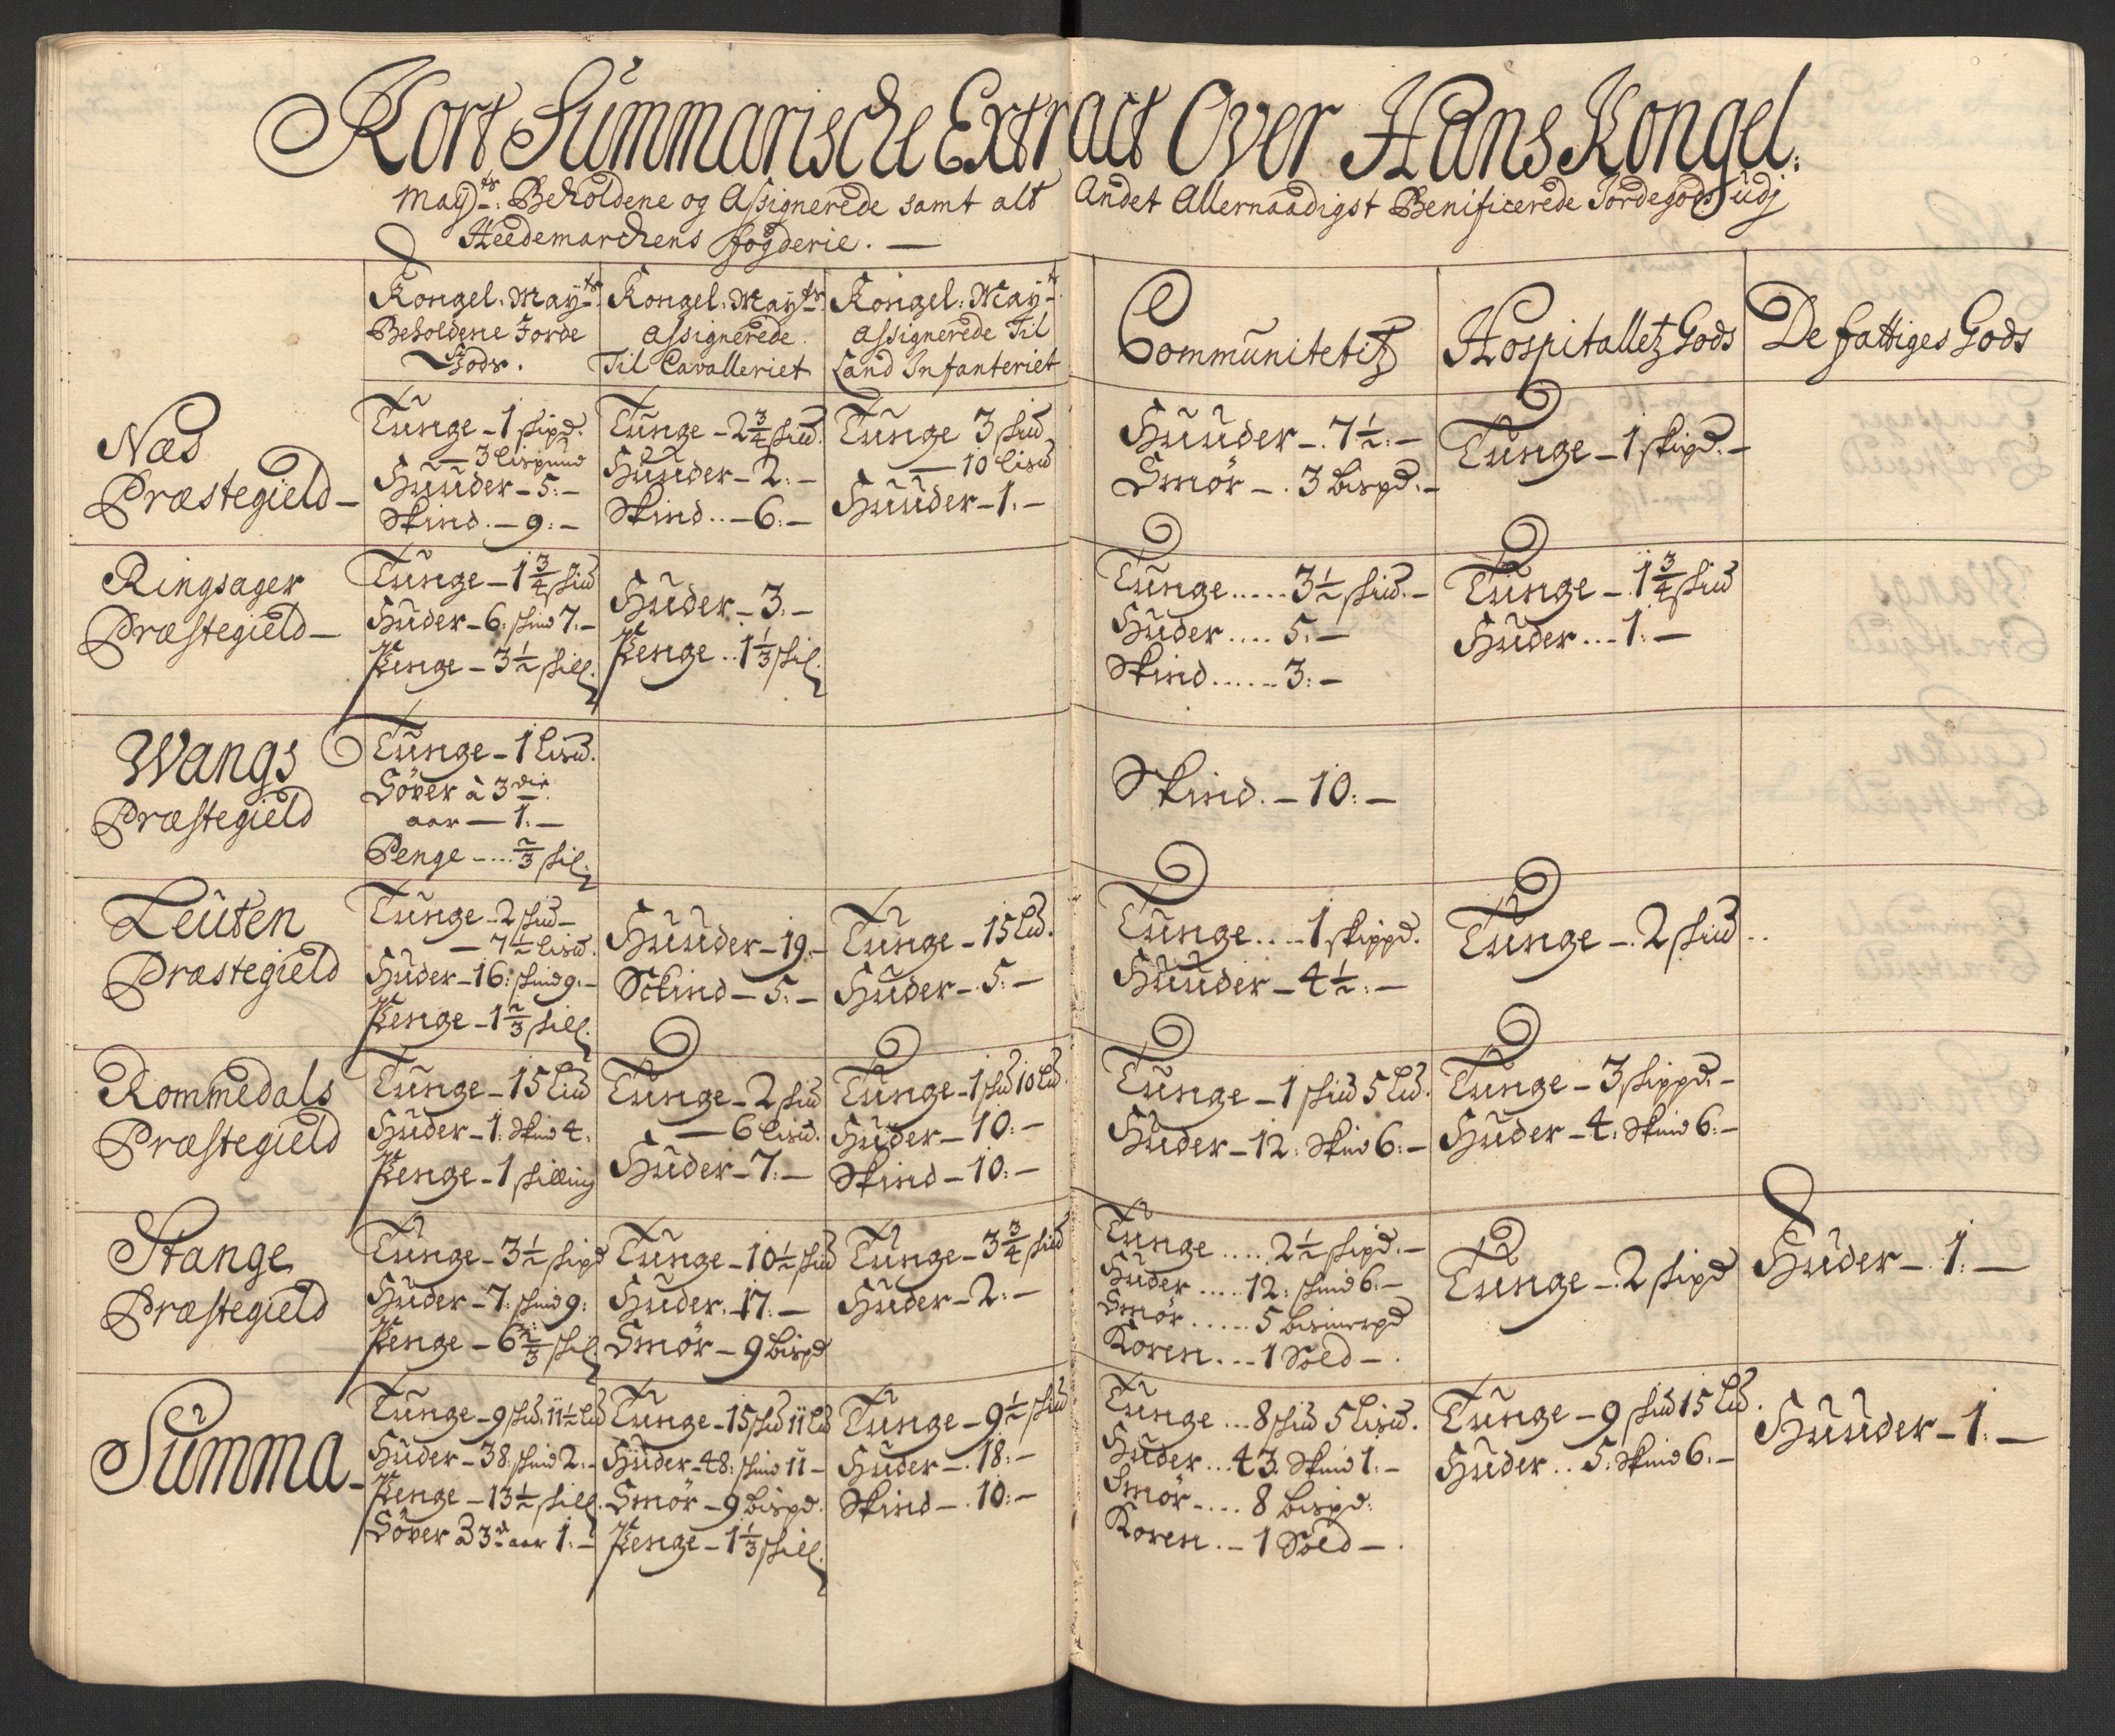 Kort Summarische Extract Over Hans Kongel:
Mayts: Beholdene og Assignerede samt alt Andet Allernaadigst Benificerede Jordegods udj
Heedemarchens fogderie. —
Kongel: Mayts:
Beholdene Jorde
Gods.
Kongel: Mayts:
Assignerede
Til Cavalleriet
Kongel: Mayts:
Assignerede Til
Land Infanteriet
Communitetitz
Hospitalletz Gods
De fattiges Gods
Næs
Præstegield —
Tunge — 1 skipd.
— 3 Lispund
Huuder — 5: —
Skind. — 9: —
Tunge — 2 3/4 skud.
Huuder — 2: —
Skind .. — 6: —
Tunge 3 skud
— 10 Lisud
Huuder — 1. —
Huuder — . 7 1/2: —
Smør — . 3 bispd. —
Tunge — 1 skipd. —
Ringsager
Præstegield —
Tunge — 1 3/4 skud
Huder — 6: skind 7: —
Penge — 3 1/2 skill:
Huder — 3: —
Penge .. 1 1/3 skil:
Tunge ..... 3 1/2 skud. —
Huder .... 5: —
Skind ...... 3: —
Tunge — 1 3/4 skud
Huder ... 1: —
Wangs
Præstegield
Tunge — 1 Lisud.
Söver à 3die
aar — 1: —
Penge .... 2/3 skil:
Skind. — 10: —
Leuten
Præstegield
Tunge — 2 skud —
— 7 1/2 Lisud.
Huder — 16: skind 9: —
Penge — 1 2/3 skill:
Huuder — 19. —
Schind — 5: —
Tunge — 15 Lud.
Huder — 5: —
Tunge .... 1 skippd.
Huuder — 4 1/2: —
Tunge — . 2 skud ..
Rommedals
Præstegield
Tunge — 15 Lud
Huder — 1: Skind 4.
Penge — 1 skilling
Tunge — 2 skud
— 6 Lisud.
Huder — 7: —
Tunge — 1 skud 10 Lud.
Huder — 10: —
Skind — 10: —
Tunge — 1 skud 5 Lud.
Huder — 12: Skind 6: —
Tunge — 3 skippd. —
Huder — 4: Skind 6: —
Stange
Præstegield
Tunge — 3 1/2 skipd
Huder — 7: skind 9:
Penge — 6 2/3 skil:
Tunge — 10 1/2 skud
Huder. 17: —
Smør — 9 bispd
Tunge — 3 3/4 skud
Huder — 2: —
Tunge .... 2 1/2 skipd. —
Huder .... 12: skind 6: —
Smør ..... 5 bismerpd
Koren. .. 1 Sold — .
Tunge — . 2 skipd
Huder — . 1: —
Summa —
Tunge — 9 skud. 11 1/2 Lud
Huder — 38: skind 2: —
Penge — 13 1/2 skill:
Söver à 3die aar 1: —
Tunge — 15 skud 11 Lud
Huder — 48: skind 11 —
Smør — 9 bispd.
Penge — 1 1/3 skill:
Tunge — 9 1/2 skud
Huder — . 18: —
Skind — . 10: —
Tunge ... 8 skud 5 Lisud.
Huder ... 43. Skind 1: —
Smør .... 8 bispd:
Koren . — 1 Sold — .
Tunge — 9 skud 15 Lud.
Huder .. 5: Skind 6: —
Huuder — 1: —